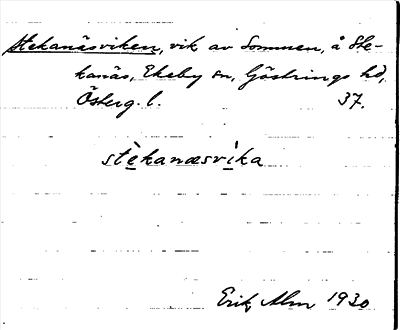 Stekanäsviken, vik av Sommen, å Ste-
kanäs, Ekeby sn, Göstrings hd,
Österg. l. 37.
stèkanæsvìka
Erik Alm 1930